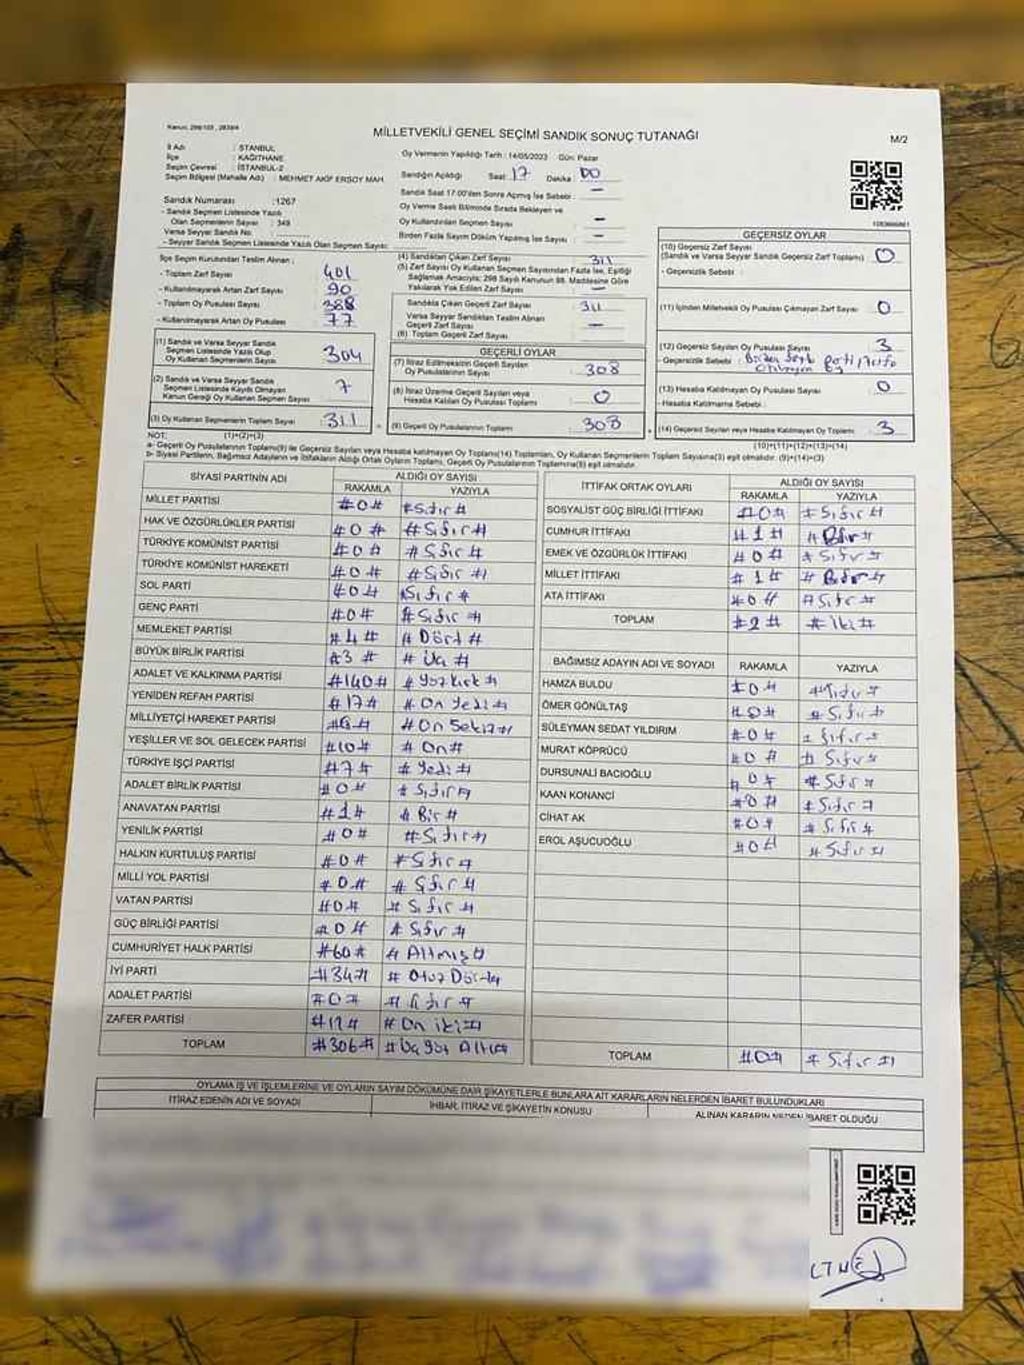 Kanun: 298/103 , 2839/4
MİLLETVEKİLİ GENEL SEÇİMİ SANDIK SONUÇ TUTANAĞI
M/2
İl Adı : İSTANBUL
İlçe : KAĞITHANE
Seçim Çevresi : İSTANBUL-2
Seçim Bölgesi (Mahalle Adı) : MEHMET AKİF ERSOY MAH.
Oy Vermenin Yapıldığı Tarih : 14/05/2023 Gün: Pazar
Sandığın Açıldığı Saat: 17 Dakika: 00
Sandık Saat 17:00'den Sonra Açılmış İse Sebebi : —
Oy Verme Saati Bitiminde Sırada Bekleyen ve
Oy Kullandırılan Seçmen Sayısı : —
Birden Fazla Sayım Döküm Yapılmış İse Sayısı : —
Sandık Numarası :1267
- Sandık Seçmen Listesinde Yazılı
Olan Seçmenlerin Sayısı : 349
Varsa Seyyar Sandık No:
- Seyyar Sandık Seçmen Listesinde Yazılı Olan Seçmen Sayısı:
İlçe Seçim Kurulundan Teslim Alınan ;
- Toplam Zarf Sayısı : 401
- Kullanılmayarak Artan Zarf Sayısı : 90
- Toplam Oy Pusulası Sayısı : 388
- Kullanılmayarak Artan Oy Pusulası : 77
(1) Sandık ve Varsa Seyyar Sandık
Seçmen Listesinde Yazılı Olup
Oy Kullanan Seçmenlerin Sayısı : 304
(2) Sandık ve Varsa Seyyar Sandık
Seçmen Listesinde Kayıtlı Olmayan
Kanun Gereği Oy Kullanan Seçmen Sayısı : 7
(3) Oy Kullanan Seçmenlerin Toplam Sayısı : 311
(4) Sandıktan Çıkan Zarf Sayısı : 311
(5) Zarf Sayısı Oy Kullanan Seçmen Sayısından Fazla İse, Eşitliği
Sağlamak Amacıyla; 298 Sayılı Kanunun 98. Maddesine Göre
Yakılarak Yok Edilen Zarf Sayısı : —
Sandıkta Çıkan Geçerli Zarf Sayısı : 311
Varsa Seyyar Sandıktan Teslim Alınan
Geçerli Zarf Sayısı : —
(6) Toplam Geçerli Zarf Sayısı :
GEÇERLİ OYLAR
(7) İtiraz Edilmeksizin Geçerli Sayılan
Oy Pusulalarının Sayısı : 308
(8) İtiraz Üzerine Geçerli Sayılan veya
Hesaba Katılan Oy Pusulası Toplamı : 0
(9) Geçerli Oy Pusulalarının Toplamı : 308
GEÇERSİZ OYLAR
(10) Geçersiz Zarf Sayısı
(Sandık ve Varsa Seyyar Sandık Geçersiz Zarf Toplamı) : 0
- Geçersizlik Sebebi :
(11) İçinden Milletvekili Oy Pusulası Çıkmayan Zarf Sayısı : 0
(12) Geçersiz Sayılan Oy Pusulası Sayısı : 3
- Geçersizlik Sebebi :
(13) Hesaba Katılmayan Oy Pusulası Sayısı : 0
- Hesaba Katılmama Sebebi :
(14) Geçersiz Sayılan veya Hesaba Katılmayan Oy Toplamı : 3
NOT: (1)+(2)=(3)
(10)+(11)+(12)+(13)=(14)
a- Geçerli Oy Pusulalarının Toplamı(9) ile Geçersiz Sayılan veya Hesaba katılmayan Oy Toplamı(14) Toplamları, Oy Kullanan Seçmenlerin Toplam Sayısına(3) eşit olmalıdır. (9)+(14)=(3)
b- Siyasi Partilerin, Bağımsız Adayların ve İttifakların Aldığı Ortak Oyların Toplamı, Geçerli Oy Pusulalarının Toplamına(9) eşit olmalıdır.
SİYASİ PARTİNİN ADI ALDIĞI OY SAYISI
RAKAMLA YAZIYLA
MİLLET PARTİSİ #0# #Sıfır#
HAK VE ÖZGÜRLÜKLER PARTİSİ #0# #Sıfır#
TÜRKİYE KOMÜNİST PARTİSİ #0# #Sıfır#
TÜRKİYE KOMÜNİST HAREKETİ #0# #Sıfır#
SOL PARTİ #0# #Sıfır#
GENÇ PARTİ #0# #Sıfır#
MEMLEKET PARTİSİ #4# #Dört#
BÜYÜK BİRLİK PARTİSİ #3# #Üç#
ADALET VE KALKINMA PARTİSİ #140# #Yüz Kırk#
YENİDEN REFAH PARTİSİ #17# #On Yedi#
MİLLİYETÇİ HAREKET PARTİSİ #On Sekiz#
YEŞİLLER VE SOL GELECEK PARTİSİ #10# #On#
TÜRKİYE İŞÇİ PARTİSİ #7# #Yedi#
ADALET BİRLİK PARTİSİ #0# #Sıfır#
ANAVATAN PARTİSİ #1# #Bir#
YENİLİK PARTİSİ #0# #Sıfır#
HALKIN KURTULUŞ PARTİSİ #0# #Sıfır#
MİLLİ YOL PARTİSİ #0# #Sıfır#
VATAN PARTİSİ #0# #Sıfır#
GÜÇ BİRLİĞİ PARTİSİ #0# #Sıfır#
CUMHURİYET HALK PARTİSİ #60# #Altmış#
İYİ PARTİ #34# #Otuz Dört#
ADALET PARTİSİ #0# #Sıfır#
ZAFER PARTİSİ #12# #On iki#
TOPLAM #306# #Üçyüz Altı#
İTTİFAK ORTAK OYLARI ALDIĞI OY SAYISI
RAKAMLA YAZIYLA
SOSYALİST GÜÇ BİRLİĞİ İTTİFAKI #0# #Sıfır#
CUMHUR İTTİFAKI #1# #Bir#
EMEK VE ÖZGÜRLÜK İTTİFAKI #0# #Sıfır#
MİLLET İTTİFAKI #1# #Bir#
ATA İTTİFAKI #0# #Sıfır#
TOPLAM #2# #İki#
BAĞIMSIZ ADAYIN ADI VE SOYADI RAKAMLA YAZIYLA
HAMZA BULDU #0# #Sıfır#
ÖMER GÖNÜLTAŞ #0# #Sıfır#
SÜLEYMAN SEDAT YILDIRIM #0# #Sıfır#
MURAT KÖPRÜCÜ #0# #Sıfır#
DURSUNALİ BACIOĞLU #0# #Sıfır#
KAAN KONANCİ #0# #Sıfır#
CİHAT AK #0# #Sıfır#
EROL AŞUCUOĞLU #0# #Sıfır#
TOPLAM #0# #Sıfır#
OYLAMA İŞ VE İŞLEMLERİNE VE OYLARIN SAYIM DÖKÜMÜNE DAİR ŞİKAYETLERLE BUNLARA AİT KARARLARIN NELERDEN İBARET BULUNDUKLARI
İTİRAZ EDENİN ADI VE SOYADI İHBAR, İTİRAZ VE ŞİKAYETİN KONUSU ALINAN KARARIN NEDEN İBARET OLDUĞU